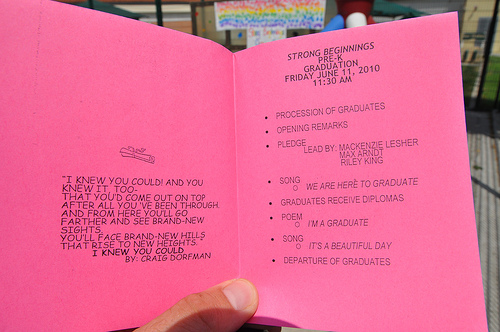 "I KNEW YOU COULD! AND YOU
KNEW IT, TOO-
THAT YOU'D COME OUT ON TOP
AFTER ALL YOU'VE BEEN THROUGH.
AND FROM HERE YOU'LL GO
FARTHER AND SEE BRAND-NEW
SIGHTS.
YOU'LL FACE BRAND-NEW HILLS
THAT RISE TO NEW HEIGHTS.
I KNEW YOU COULD
BY: CRAIG DORFMAN
STRONG BEGINNINGS
PRE-K
GRADUATION
FRIDAY JUNE 11, 2010
11:30 AM
• PROCESSION OF GRADUATES
• OPENING REMARKS
• PLEDGE
LEAD BY: MACKENZIE LESHER
MAX ARNDT
RILEY KING
• SONG
○ WE ARE HERE TO GRADUATE
• GRADUATES RECEIVE DIPLOMAS
• POEM
○ I'M A GRADUATE
• SONG
○ IT'S A BEAUTIFUL DAY
• DEPARTURE OF GRADUATES